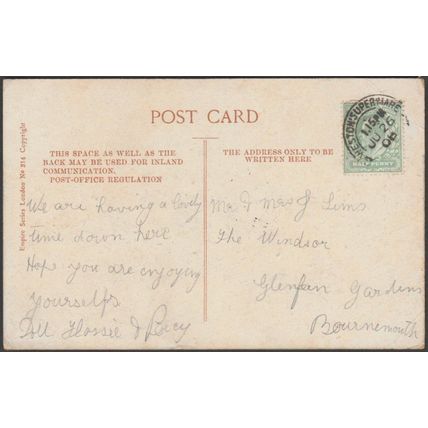 POST CARD
THIS SPACE AS WELL AS THE
BACK MAY BE USED FOR INLAND
COMMUNICATION.
POST-OFFICE REGULATION
THE ADDRESS ONLY TO BE
WRITTEN HERE
Empire Series London No 314 Copyright
WESTON-SUPER-MARE
1.15PM
JU 26
06
HALF PENNY
We are having a lovely
time down here
Hope you are enjoying
yourselfs
Doll Flossie & Percy
Mr & Mrs J Sims
The Windsor
Glenfern Gardens
Bournemouth